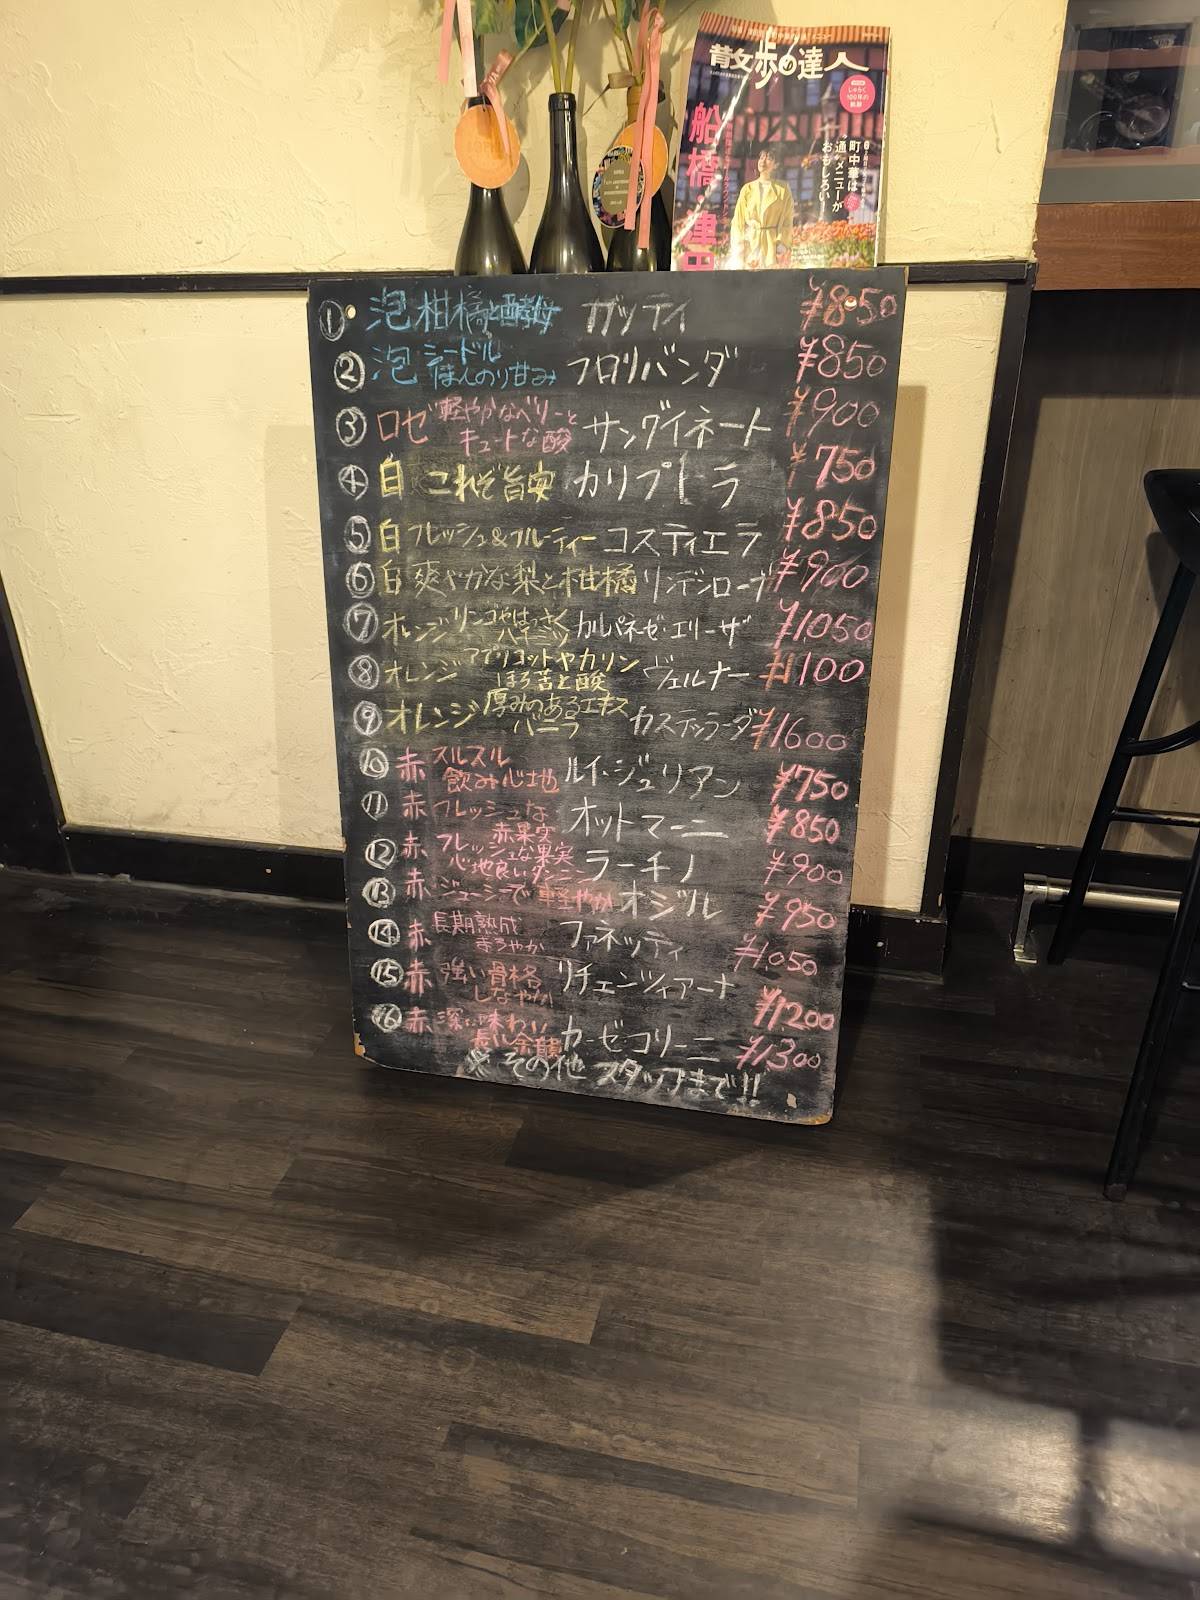 散歩の達人
船橋・津田
町中華は
通しメニューが
おもしろい!
① 泡 柑橘と酵母 ガッティ ¥850
② 泡 シードル ほんのり甘み フロリバンダ ¥850
③ ロゼ 軽やかなベリーと キュートな酸 サングイネート ¥900
④ 白 これぞ旨安 カリプトラ ¥750
⑤ 白 フレッシュ&フルーティー コスティエラ ¥850
⑥ 白 爽やかな梨と柑橘 リンデンローブ ¥900
⑦ オレンジ リンゴやはっさく ハチミツ カルパネーゼ・エリーザ ¥1050
⑧ オレンジ アプリコットやカリン ほろ苦と酸 ヴェルナー ¥1100
⑨ オレンジ 厚みのあるエキス バニラ カステッラーダ ¥1,600
⑩ 赤 スルスル 飲み心地 ルイ・ジュリアン ¥750
⑪ 赤 フレッシュな 赤果実 オットマーニ ¥850
⑫ 赤 フレッシュな果実 心地良いタンニン ラーチノ ¥900
⑬ 赤 ジューシーで軽やか オジル ¥950
⑭ 赤 長期熟成 まろやか ファネッティ ¥1,050
⑮ 赤 強い骨格 しなやか リチェンツィアーナ ¥1200
⑯ 赤 深い味わい 長い余韻 カーゼ・コリーニ ¥1300
※その他 スタッフまで!!